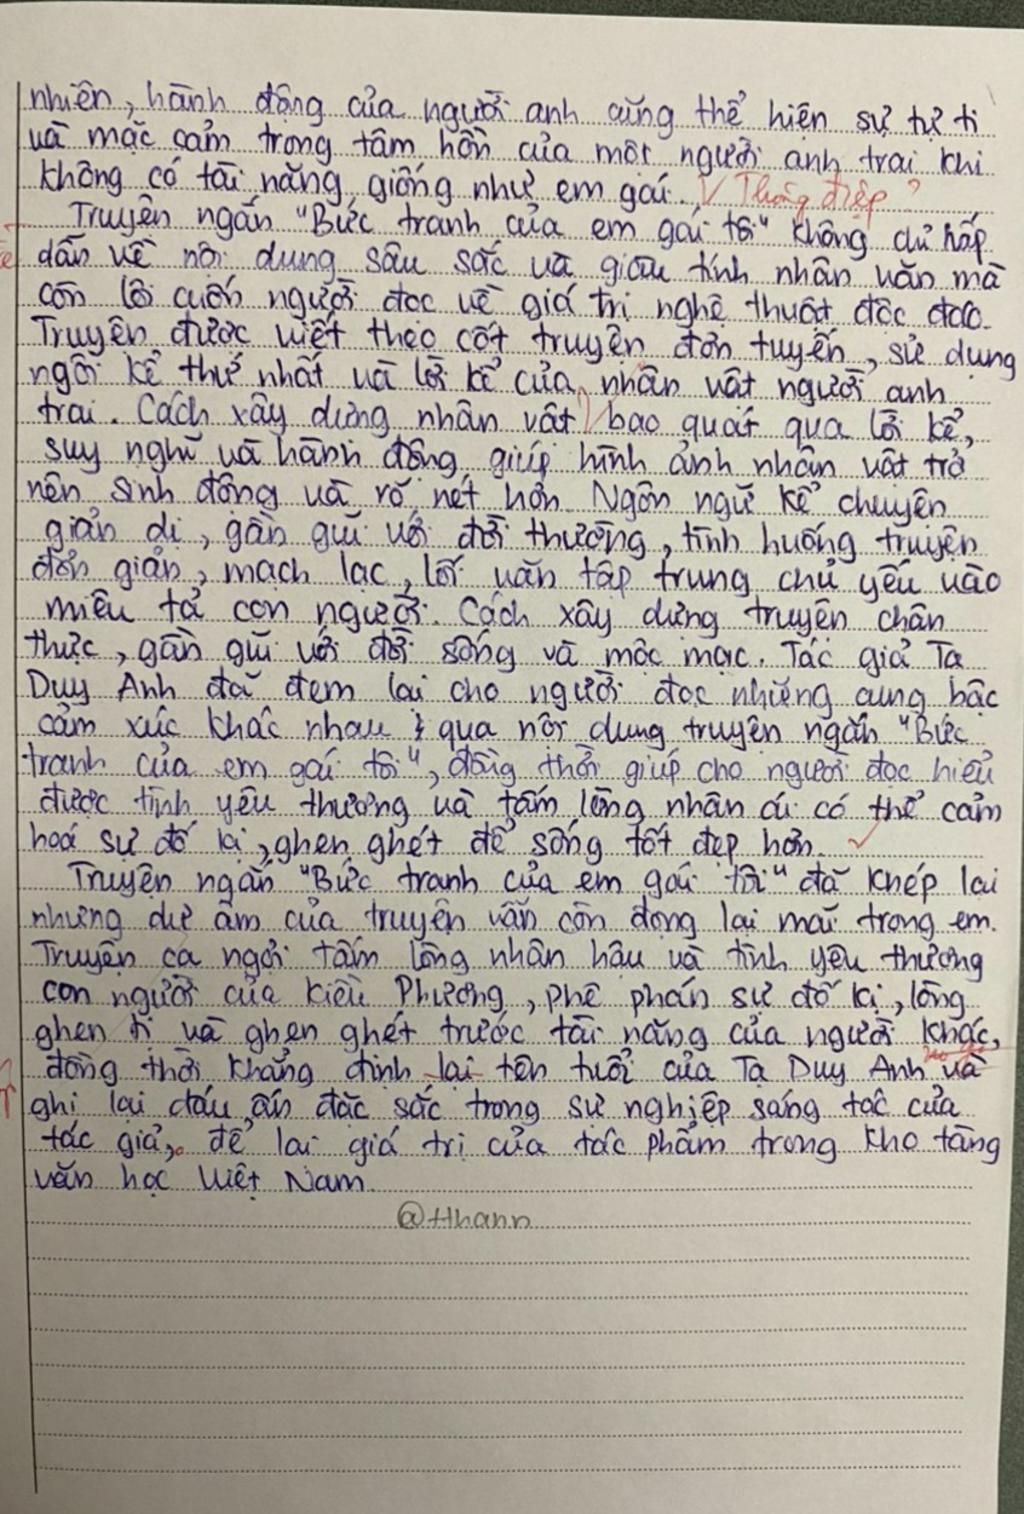 nhiên, hành động của người anh cũng thể hiện sự tự ti
và mặc cảm trong tâm hồn của một người anh trai khi
không có tài năng giống như em gái. Thông điệp?
Truyện ngắn "Bức tranh của em gái tôi" không chỉ hấp
dẫn về nội dung sâu sắc và giàu tính nhân văn mà
còn lôi cuốn người đọc về giá trị nghệ thuật độc đáo.
Truyện được viết theo cốt truyện đơn tuyến, sử dụng
ngôi kể thứ nhất và lời kể của nhân vật người anh
trai. Cách xây dựng nhân vật bao quát qua lời kể,
suy nghĩ và hành động giúp hình ảnh nhân vật trở
nên sinh động và rõ nét hơn. Ngôn ngữ kể chuyện
giản dị, gần gũi với đời thường, tình huống truyện
đơn giản, mạch lạc, lối văn tập trung chủ yếu vào
miêu tả con người. Cách xây dựng truyện chân
thực, gần gũi với đời sống và mộc mạc. Tác giả Tạ
Duy Anh đã đem lại cho người đọc những cung bậc
cảm xúc khác nhau qua nội dung truyện ngắn "Bức
tranh của em gái tôi", đồng thời giúp cho người đọc hiểu
được tình yêu thương và tấm lòng nhân ái có thể cảm
hoá sự đố kị, ghen ghét để sống tốt đẹp hơn.
Truyện ngắn "Bức tranh của em gái tôi" đã khép lại
nhưng dư âm của truyện vẫn còn đọng lại mãi trong em.
Truyện ca ngợi tấm lòng nhân hậu và tình yêu thương
con người của Kiều Phương, phê phán sự đố kị, lòng
ghen tị và ghen ghét trước tài năng của người khác,
đồng thời khẳng định lại tên tuổi của Tạ Duy Anh và
ghi lại dấu ấn đặc sắc trong sự nghiệp sáng tác của
tác giả, để lại giá trị của tác phẩm trong kho tàng
văn học Việt Nam.
@tthann